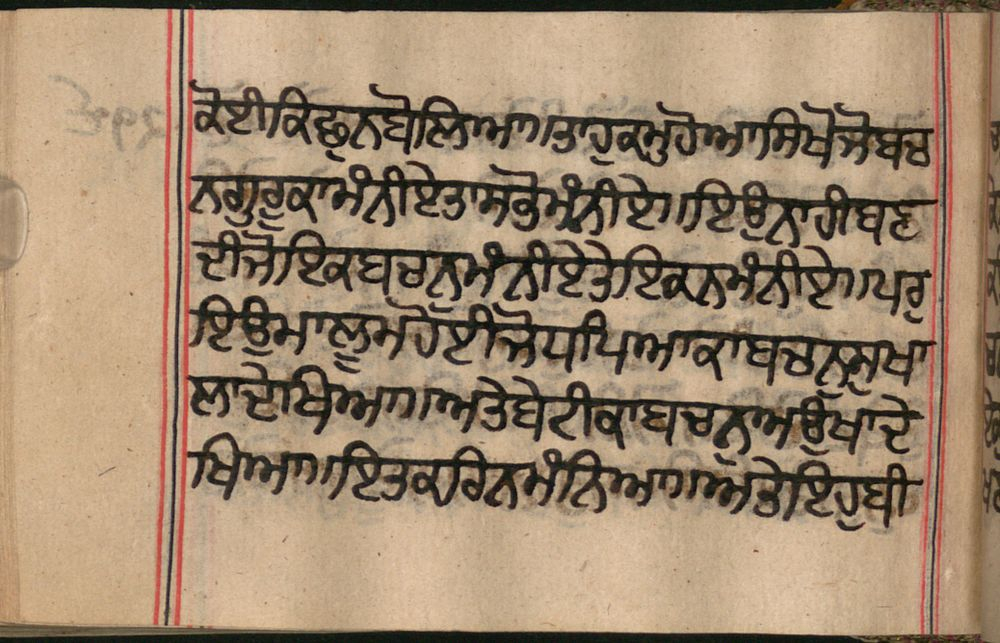 ਕੋਈਕਿਛੁਨਬੋਲਿਆ॥ਤਾਹੁਕਮੁਹੋਆਸਿਖੋਜੋਬਚ
ਨਗੁਰੂਕਾਮੰਨੀਏਤਾਸਭੋਮੰਨੀਏ॥ਇਉਨਾਹੀਬਣ
ਦੀਜੋਇਕਬਚਨੁਮੰਨੀਏਤੇਇਕਨਮੰਨੀਏ॥ਪਰੁ
ਇਉਮਾਲੂਮਹੋਈਜੋਧਧਿਆਕਾਬਚਨੁਸੁਖਾ
ਲਾਦੇਖਿਆ॥ਅਤੇਬੇਟੀਕਾਬਚਨੁਅਉਖਾਦੇ
ਖਿਆ॥ਇਤਕਰਿਨਮੰਨਿਆ॥ਅਤੇਇਹੁਬੀ